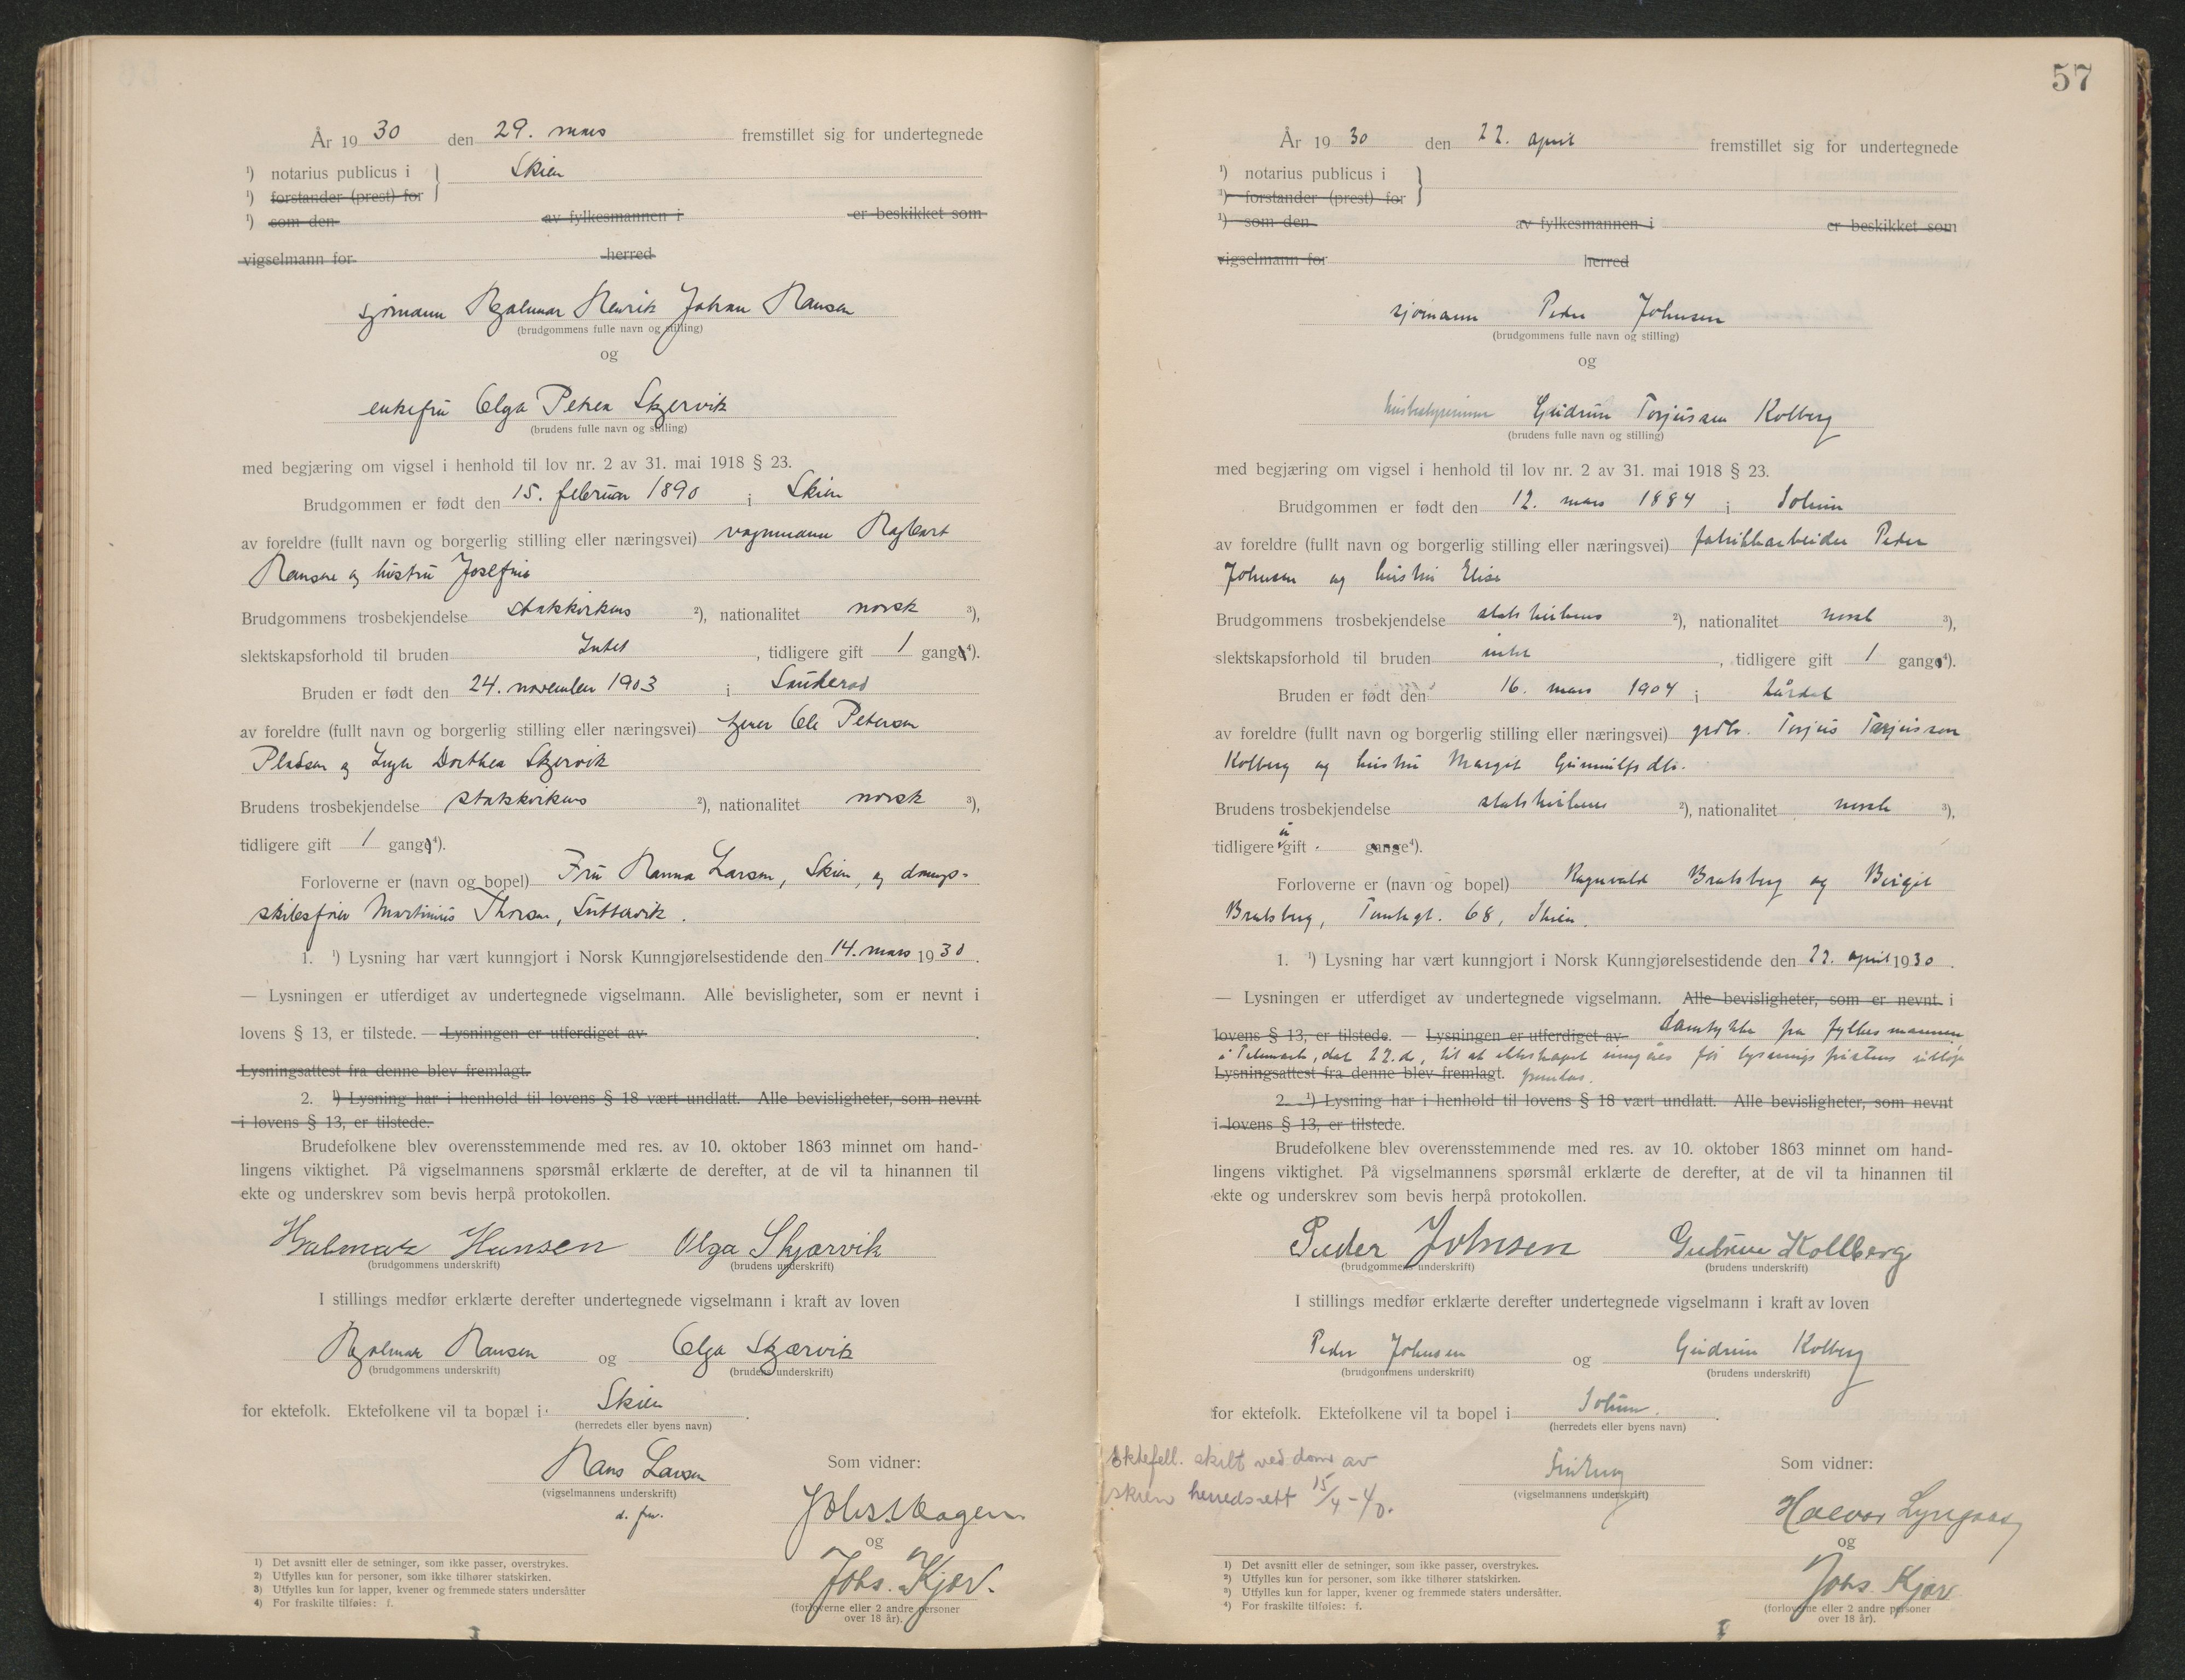 År 19 30 den 29. mars fremstillet sig for undertegnede
1) notarius publicus i } Skien
1) forstander (prest) for
1) som den av fylkesmannen i er beskikket som
vigselmann for herred
sjømann Hjalmar Henrik Johan Hansen
(brudgommens fulle navn og stilling)
og
enkefru Olga Petrea Skjervik
(brudens fulle navn og stilling)
med begjæring om vigsel i henhold til lov nr. 2 av 31. mai 1918 § 23.
Brudgommen er født den 15. februar 1890 i Skien
av foreldre (fullt navn og borgerlig stilling eller næringsvei) vognmann Hagbart
Hansen og hustru Josefine
Brudgommens trosbekjendelse statskirkens 2), nationalitet norsk 3),
slektskapsforhold til bruden Intet , tidligere gift 1 gang 4).
Bruden er født den 24. november 1903 i Sauherad
av foreldre (fullt navn og borgerlig stilling eller næringsvei) Ole Petersen
Pladsen og Inga Dorthea Skjervik
Brudens trosbekjendelse statskirkens 2), nationalitet norsk 3),
tidligere gift 1 gang 4).
Forloverne er (navn og bopel) Fru Hanna Larsen, Skien, og damp-
skibsfører Martinius Thorsen,
1. 1) Lysning har vært kunngjort i Norsk Kunngjørelsestidende den 14. mars 1930.
— Lysningen er utferdiget av undertegnede vigselmann. Alle bevisligheter, som er nevnt i
lovens § 13, er tilstede. — Lysningen er utferdiget av .
Lysningsattest fra denne blev fremlagt.
2. 1) Lysning har i henhold til lovens § 18 vært undlatt. Alle bevisligheter, som nevnt
i lovens § 13, er tilstede.
Brudefolkene blev overensstemmende med res. av 10. oktober 1863 minnet om hand-
lingens viktighet. På vigselmannens spørsmål erklærte de derefter, at de vil ta hinannen til
ekte og underskrev som bevis herpå protokollen.
Hjalmar Hansen Olga Skjærvik
(brudgommens underskrift) (brudens underskrift)
I stillings medfør erklærte derefter undertegnede vigselmann i kraft av loven
Hjalmar Hansen og Olga Skjærvik
(brudgommens underskrift) (brudens underskrift)
for ektefolk. Ektefolkene vil ta bopæl i Skien .
(herredets eller byens navn)
Hans Larsen Som vidner:
(vigselmannens underskrift)
d. fm.
Johs. Hagen
og
Johs. Kjær.
(forloverne eller 2 andre personer
over 18 år).
1) Det avsnitt eller de setninger, som ikke passer, overstrykes.
2) Utfylles kun for personer, som ikke tilhører statskirken.
3) Utfylles kun for lapper, kvener og fremmede staters undersåtter
4) For fraskilte tilføies: f.
57
År 19 30 den 22. april fremstillet sig for undertegnede
1) notarius publicus i }
1) forstander (prest) for
1) som den av fylkesmannen i er beskikket som
vigselmann for herred
sjømann Peder Johnsen
(brudgommens fulle navn og stilling)
og
husbestyrerinne Gudrun Torjussen Kolberg
(brudens fulle navn og stilling)
med begjæring om vigsel i henhold til lov nr. 2 av 31. mai 1918 § 23.
Brudgommen er født den 12. mars 1884 i Solum
av foreldre (fullt navn og borgerlig stilling eller næringsvei) fabrikkarbeider Peder
Johnsen og hustru Elise
Brudgommens trosbekjendelse statskirkens 2), nationalitet norsk 3),
slektskapsforhold til bruden intet , tidligere gift 1 gang 4).
Bruden er født den 16. mars 1904 i Lårdal
av foreldre (fullt navn og borgerlig stilling eller næringsvei) grdbr. Torjus Torjusson
Kolberg og hustru Margit Gunnulfsdtr.
Brudens trosbekjendelse statskirkens 2), nationalitet norsk 3),
tidligere ugift . gange4).
Forloverne er (navn og bopel) Ragnvald Bratsberg og Birgit
Bratsberg, Tomtegt. 68, Skien.
1. 1) Lysning har vært kunngjort i Norsk Kunngjørelsestidende den 22. april 1930.
— Lysningen er utferdiget av undertegnede vigselmann. Alle bevisligheter, som er nevnt i
lovens § 13, er tilstede. — Lysningen er utferdiget av Samtykke fra fylkesmannen
i Telemark, dat 22. ds, til at ekteskapet inngåes før lysningsfristens utløp
Lysningsattest fra denne blev fremlagt. fremlas.
2. 1) Lysning har i henhold til lovens § 18 vært undlatt. Alle bevisligheter, som nevnt
i lovens § 13, er tilstede.
Brudefolkene blev overensstemmende med res. av 10. oktober 1863 minnet om hand-
lingens viktighet. På vigselmannens spørsmål erklærte de derefter, at de vil ta hinannen til
ekte og underskrev som bevis herpå protokollen.
Peder Johnsen Gudrun Kollberg
(brudgommens underskrift) (brudens underskrift)
I stillings medfør erklærte derefter undertegnede vigselmann i kraft av loven
Peder Johnsen og Gudrun Kolberg
(brudgommens underskrift) (brudens underskrift)
for ektefolk. Ektefolkene vil ta bopel i Solum. .
(herredets eller byens navn)
Ektefell. skilt ved dom av
Skien herredsrett 15/4-40.
Som vidner:
(vigselmannens underskrift)
Halvor Lyngaas
og
Johs. Kjær
(forloverne eller 2 andre personer
over 18 år).
1) Det avsnitt eller de setninger, som ikke passer, overstrykes.
2) Utfylles kun for personer, som ikke tilhører statskirken.
3) Utfylles kun for lapper, kvener og fremmede staters undersåtter.
4) For fraskilte tilføies: f.